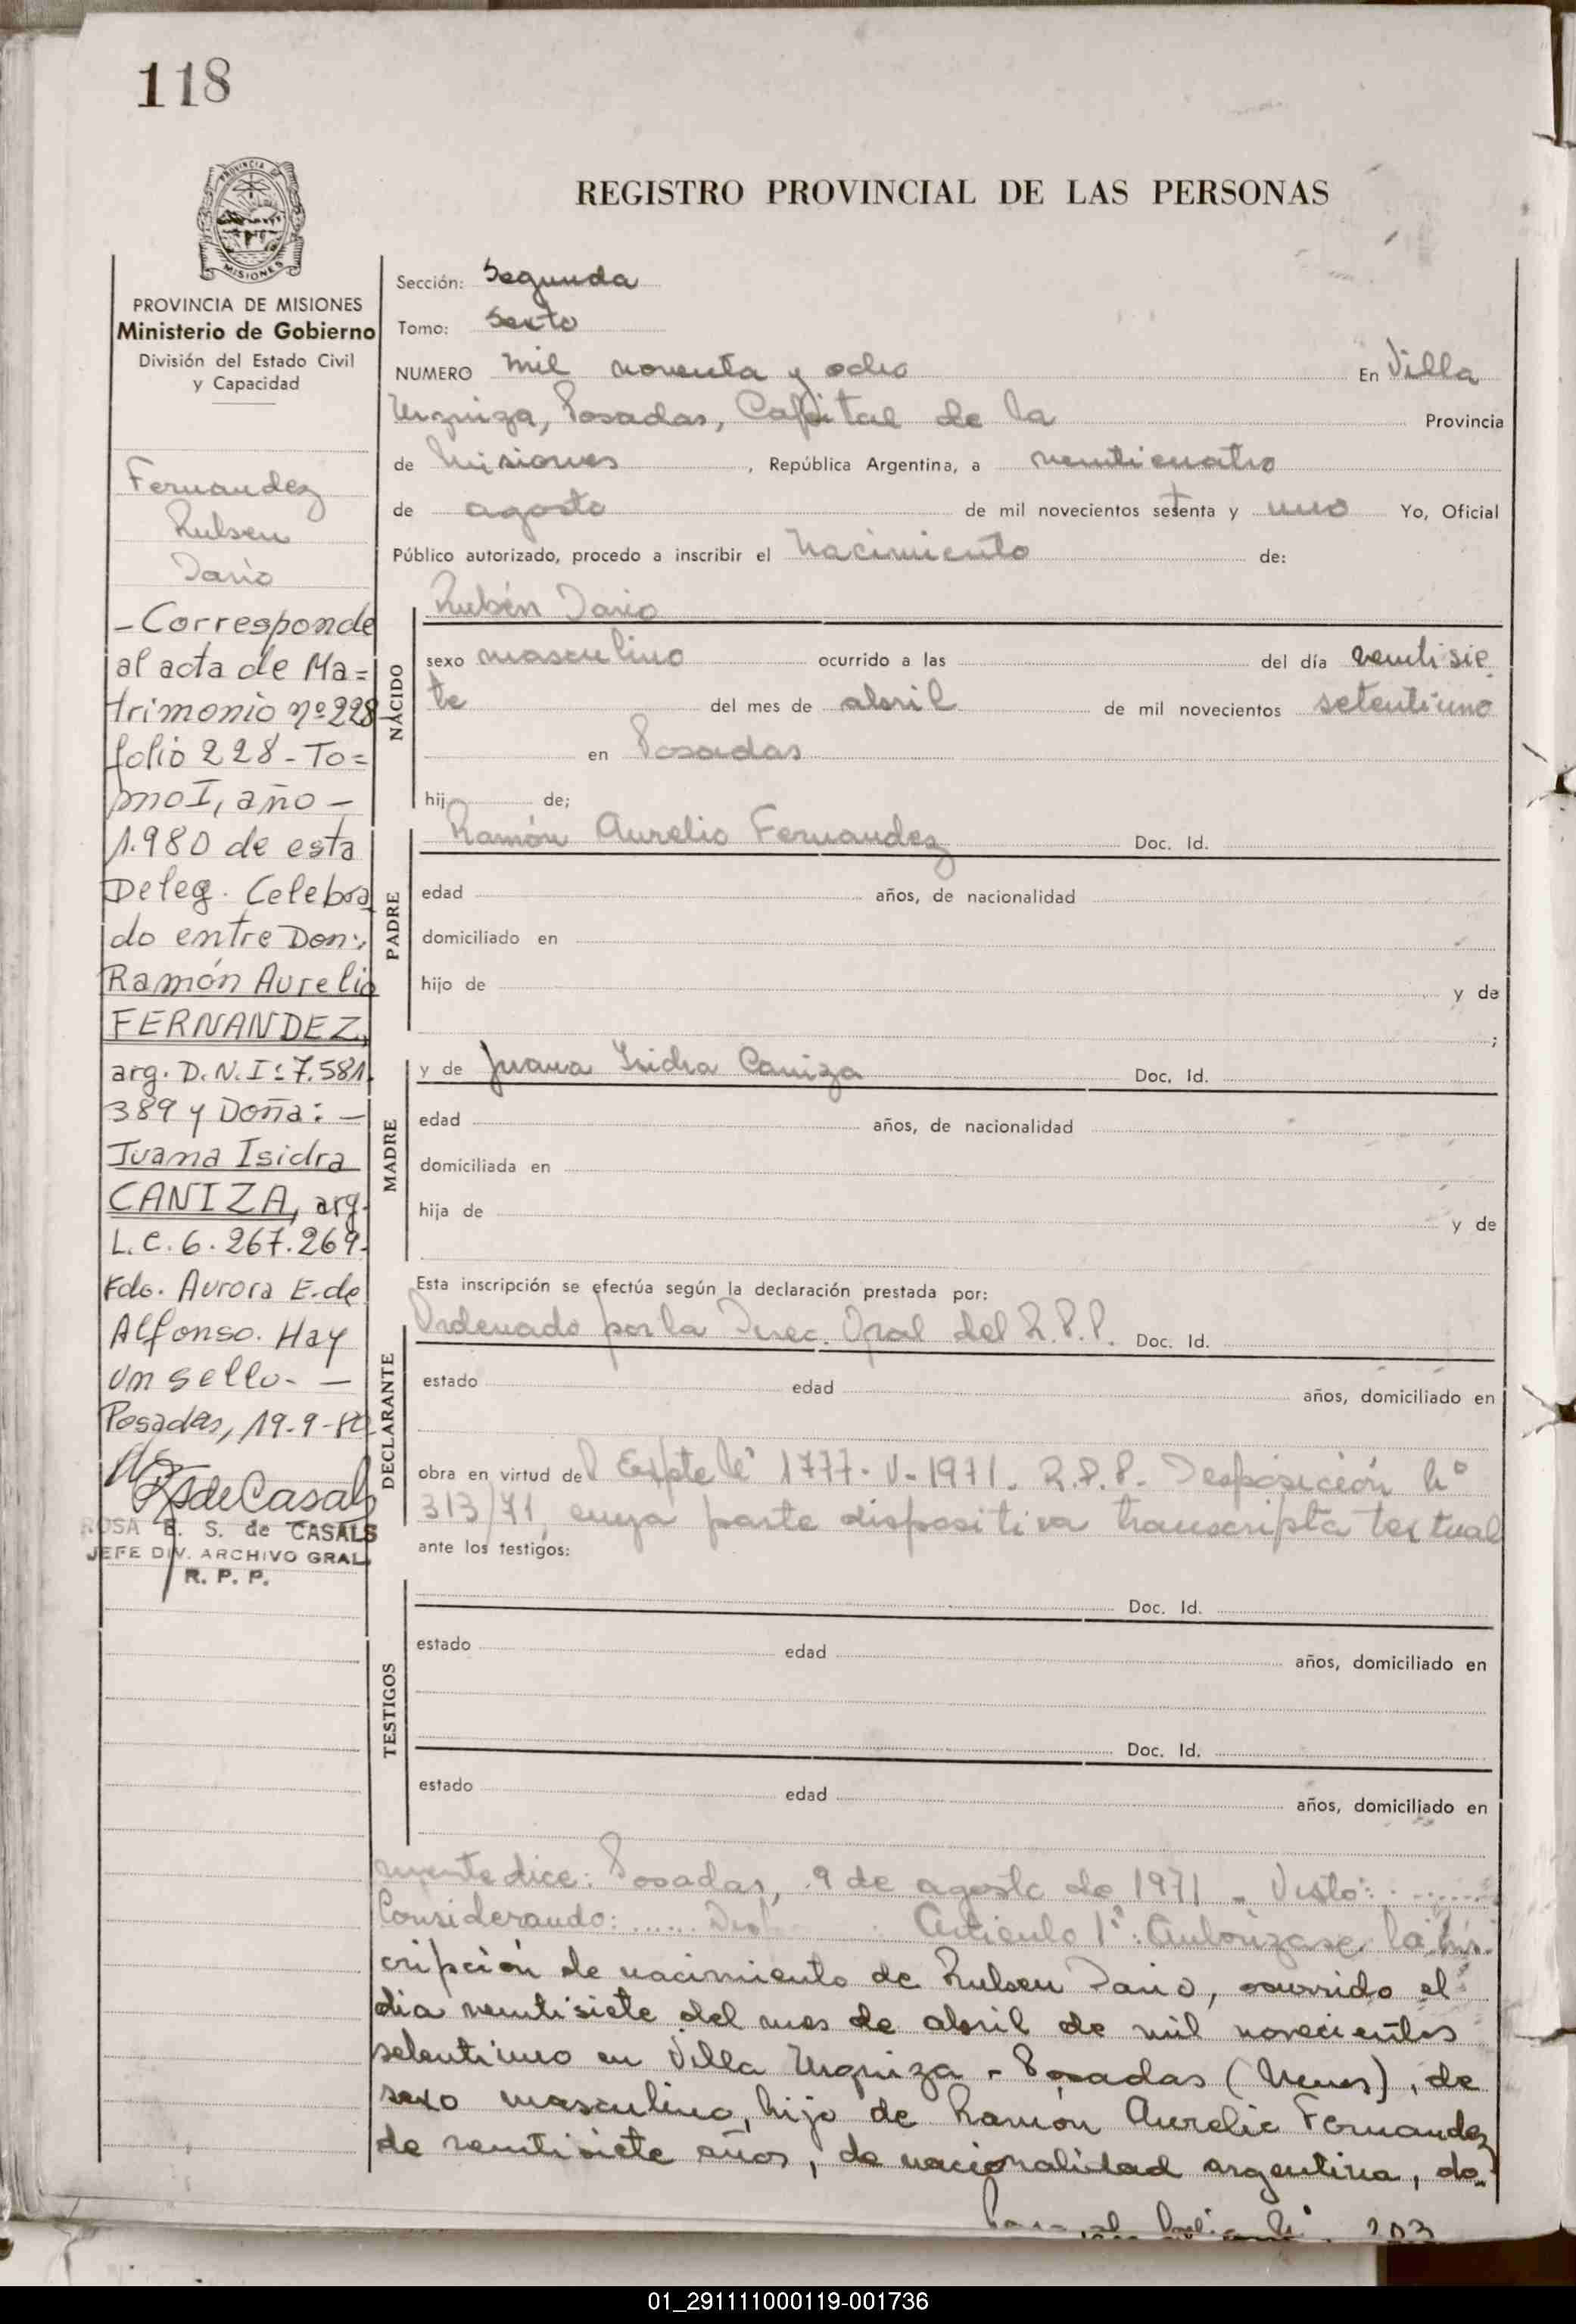 118
PROVINCIA DE
MISIONES
REGISTRO PROVINCIAL DE LAS PERSONAS
PROVINCIA DE MISIONES
Ministerio de Gobierno
División del Estado Civil
y Capacidad
Fernandez
Ruben
Dario
- Corresponde
al acta de Ma=
trimonio nº 228
folio 228 - To=
mo I, año -
1.980 de esta
Deleg. Celebra
do entre Don:,
Ramón Aurelio
FERNANDEZ,
arg. D.N.I: 7.581.
389 y Doña: -
Juana Isidra
CANIZA, arg.
L.C. 6.267.269.
Fdo. Aurora E. de
Alfonso. Hay
un sello. -
Posadas, 19-9-80
RSdeCasals
ROSA E. S. de CASALS
JEFE DIV. ARCHIVO GRAL.
R. P. P.
Sección: Segunda
Tomo: Sexto
NUMERO mil noventa y ocho En Villa
Urquiza, Posadas, Capital de la Provincia
de Misiones, República Argentina, a venticuatro
de agosto de mil novecientos setenta y uno Yo, Oficial
Público autorizado, procedo a inscribir el Nacimiento de:
NACIDO
Rubén Dario
sexo masculino ocurrido a las del día ventisie
te del mes de abril de mil novecientos setentiuno
en Posadas
hij de;
PADRE
Ramón Aurelio Fernandez Doc. Id.
edad años, de nacionalidad
domiciliado en
hijo de y de
;
MADRE
y de Juana Isidra Caniza Doc. Id.
edad años, de nacionalidad
domiciliada en
hija de y de
Esta inscripción se efectúa según la declaración prestada por:
DECLARANTE
Ordenado por la Direc. Gral del R.P.P. Doc. Id.
estado edad años, domiciliado en
obra en virtud del Expte Nº 1777-V-1971. R.P.P. Desposición Nº
313/71, cuya parte dispositiva transcripta textual
ante los testigos:
TESTIGOS
Doc. Id.
estado edad años, domiciliado en
Doc. Id.
estado edad años, domiciliado en
mente dice: Posadas, 9 de agosto de 1971 - Visto: ......
Considerando: ...... Artículo 1º: Autorizase la ins
cripción de nacimiento de Ruben Dario, ocurrido el
dia ventisiete del mes de abril de mil novecientos
setentiuno en Villa Urquiza - Posadas (Mnes), de
sexo masculino, hijo de Ramón Aurelio Fernandez
de ventisiete años, de nacionalidad argentina, do-
01_291111000119-001736